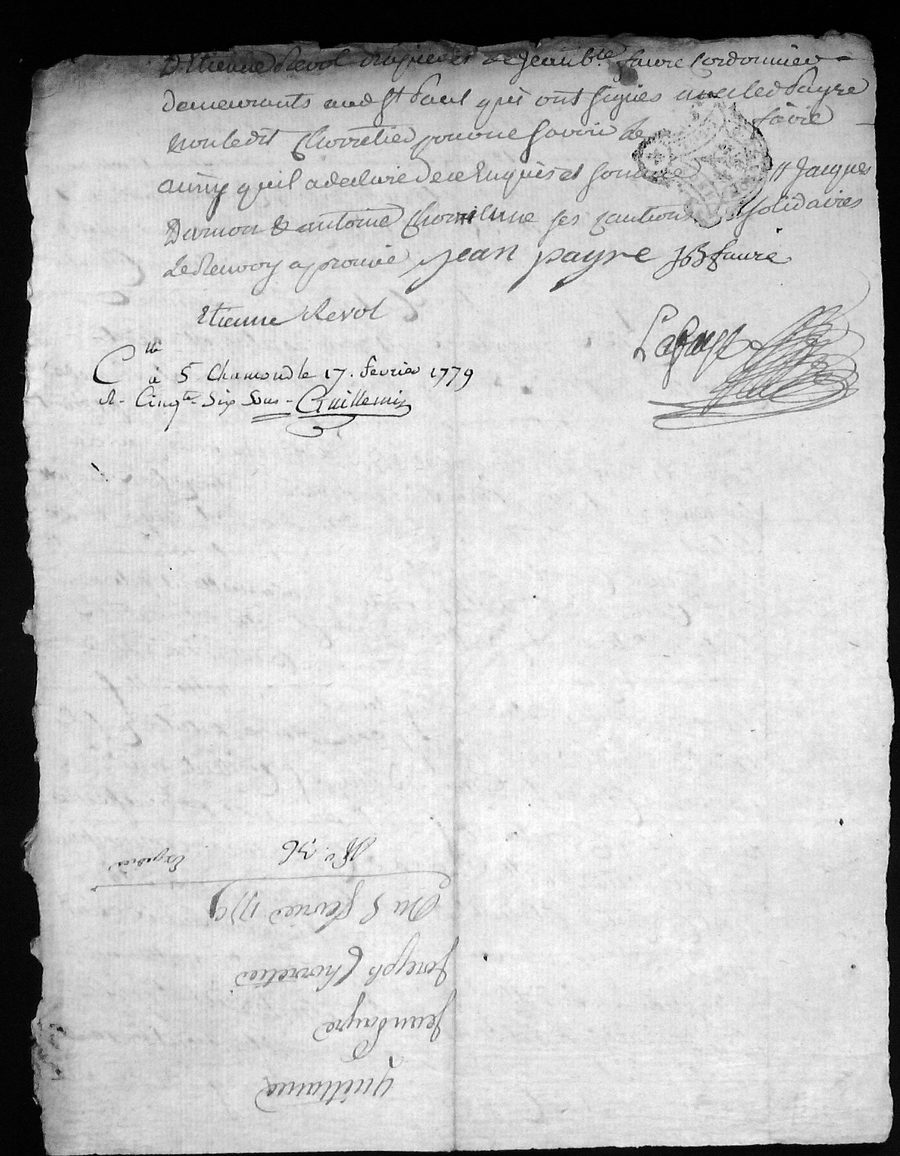 D'Etienne Revol et de jean b.te faure Cordonnier
demeurants aud St Paul qui ont signés avec led Payre
Non ledit Chorretier pour ne savoir le faire
ainsy qu'il a declaré de ce Enquis et sommé # Jacques
et antoine ses cautions solidaires
Le Renvoy aprouvé jean payre JB faure
Etienne Revol
C.lé à St Chamond le 17. fevrier 1779
R. Cinq.te Six Sous Guillemin
Quittance
Jean Payre
Joseph Chorretier
Du 8 fevrier 1779
N.º 36
Expedié